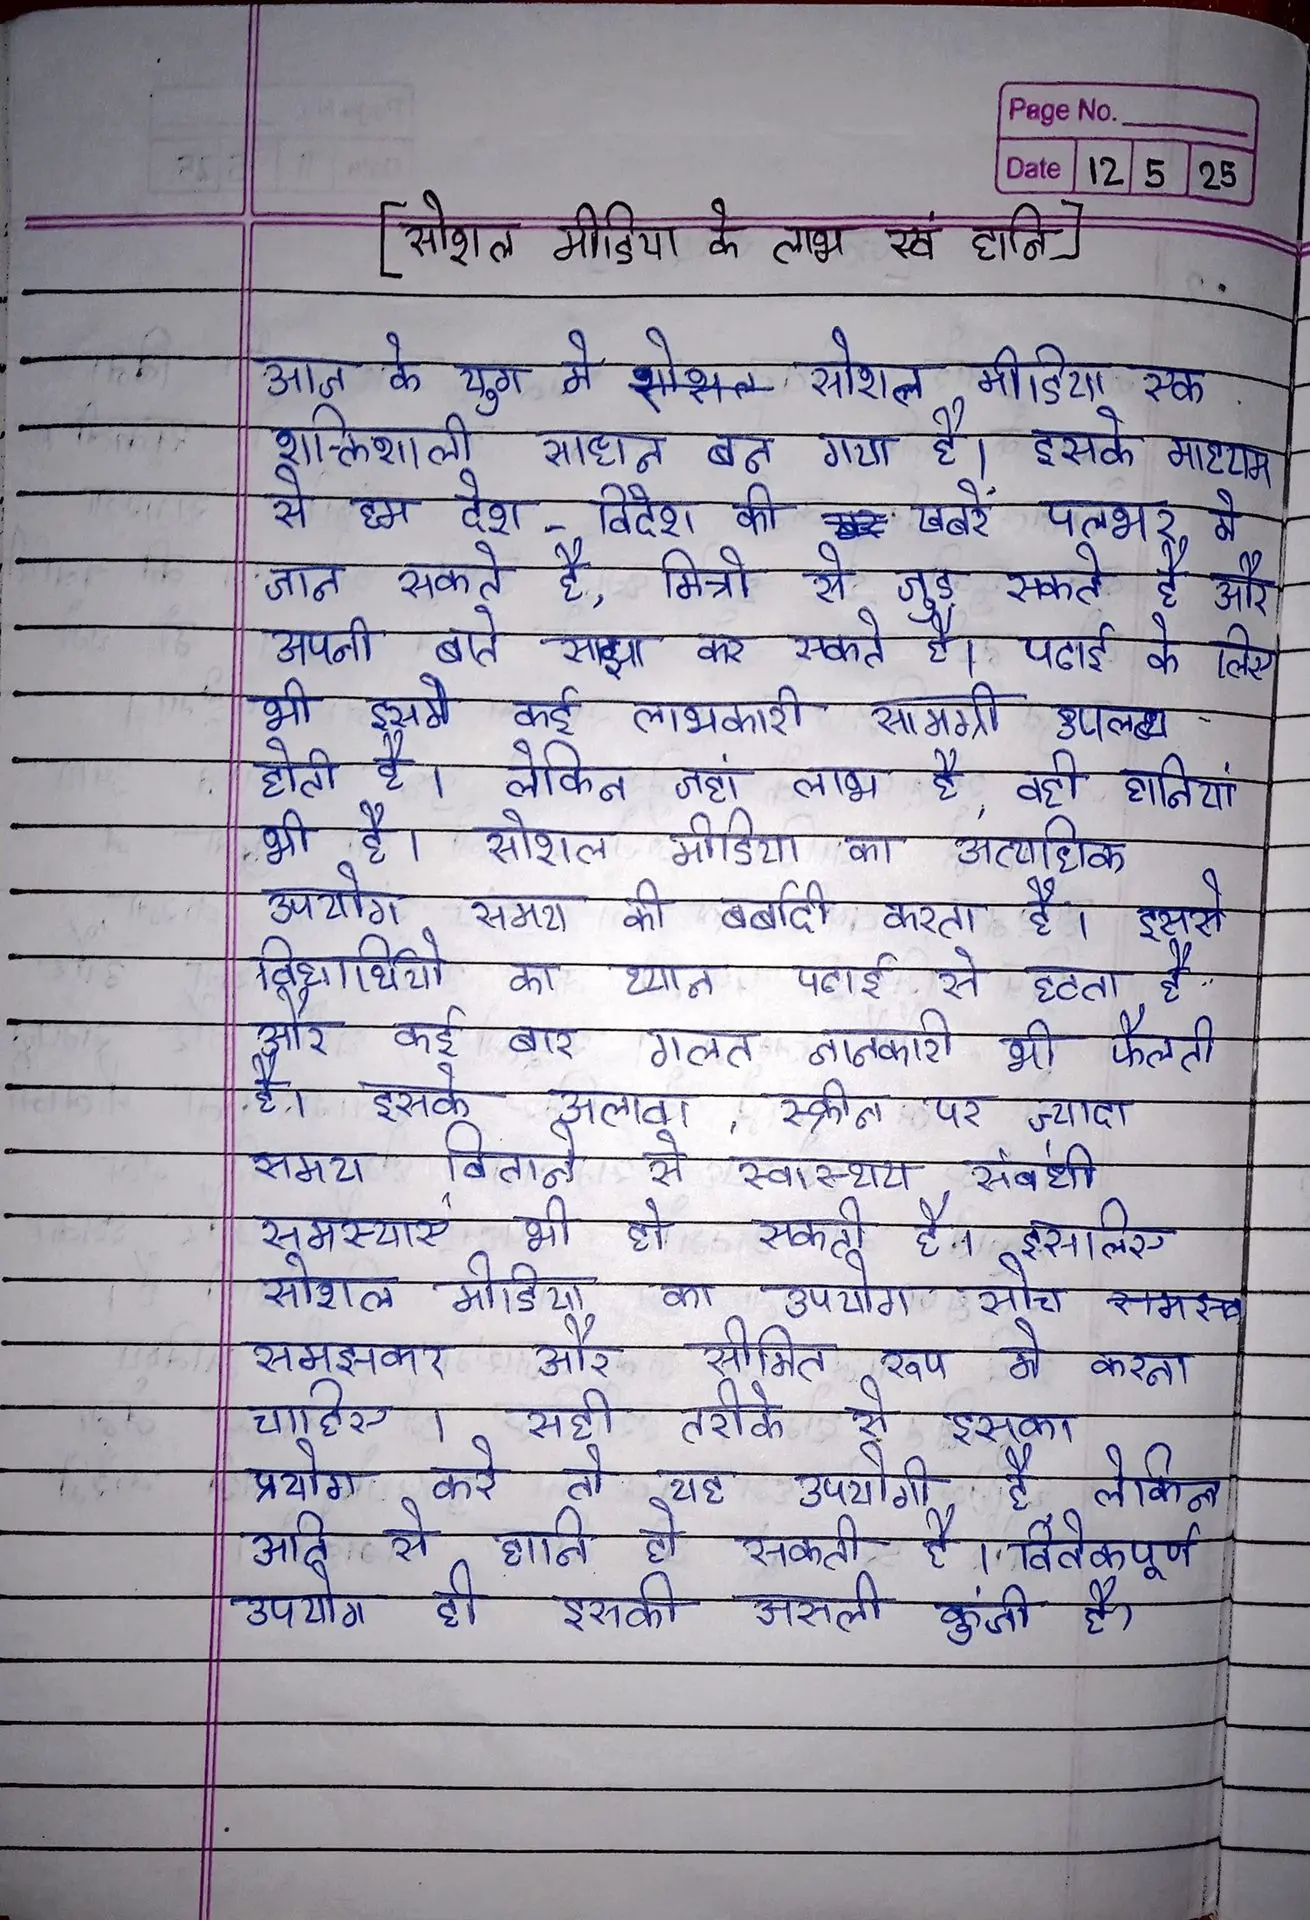 Page No.
Date 12 5 25
[सोशल मीडिया के लाभ एवं हानि]
आज के युग मे सोशल मीडिया एक
शक्तिशाली साधन बन गया है। इसके माध्यम
से हम देश - विदेश की खबरें पलभर मे
जान सकते है, मित्रो से जुड़ सकते है और
अपनी बाते साझा कर सकते है। पढाई के लिए
भी इसमे कई लाभकारी सामग्री उपलब्ध
होती है। लेकिन जहां लाभ है, वही हानियां
भी है। सोशल मीडिया का अत्याधिक
उपयोग समय की बर्बादी करता है। इससे
विद्यार्थियो का ध्यान पढाई से हटता है
और कई बार गलत जानकारी भी फैलती
है। इसके अलावा, स्क्रीन पर ज्यादा
समय बिताने से स्वास्थय संबंधी
समस्याएं भी हो सकती है। इसलिए
सोशल मीडिया का उपयोग सोच
समझकर और सीमित रूप मे करना
चाहिए। सही तरीके से इसका
प्रयोग करे तो यह उपयोगी है, लेकिन
अति से हानि हो सकती है। विवेकपूर्ण
उपयोग ही इसकी असली कुंजी है।